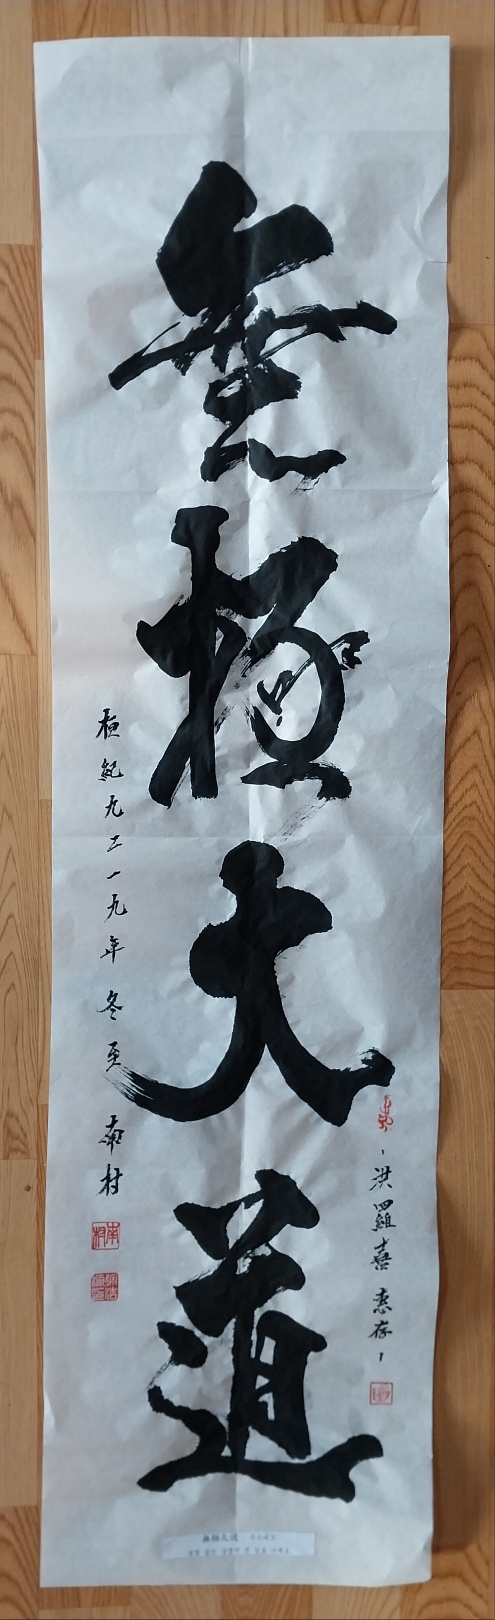 無極大道
洪羅喜 惠存
桓紀九二一九年 冬至 南村
無極大道